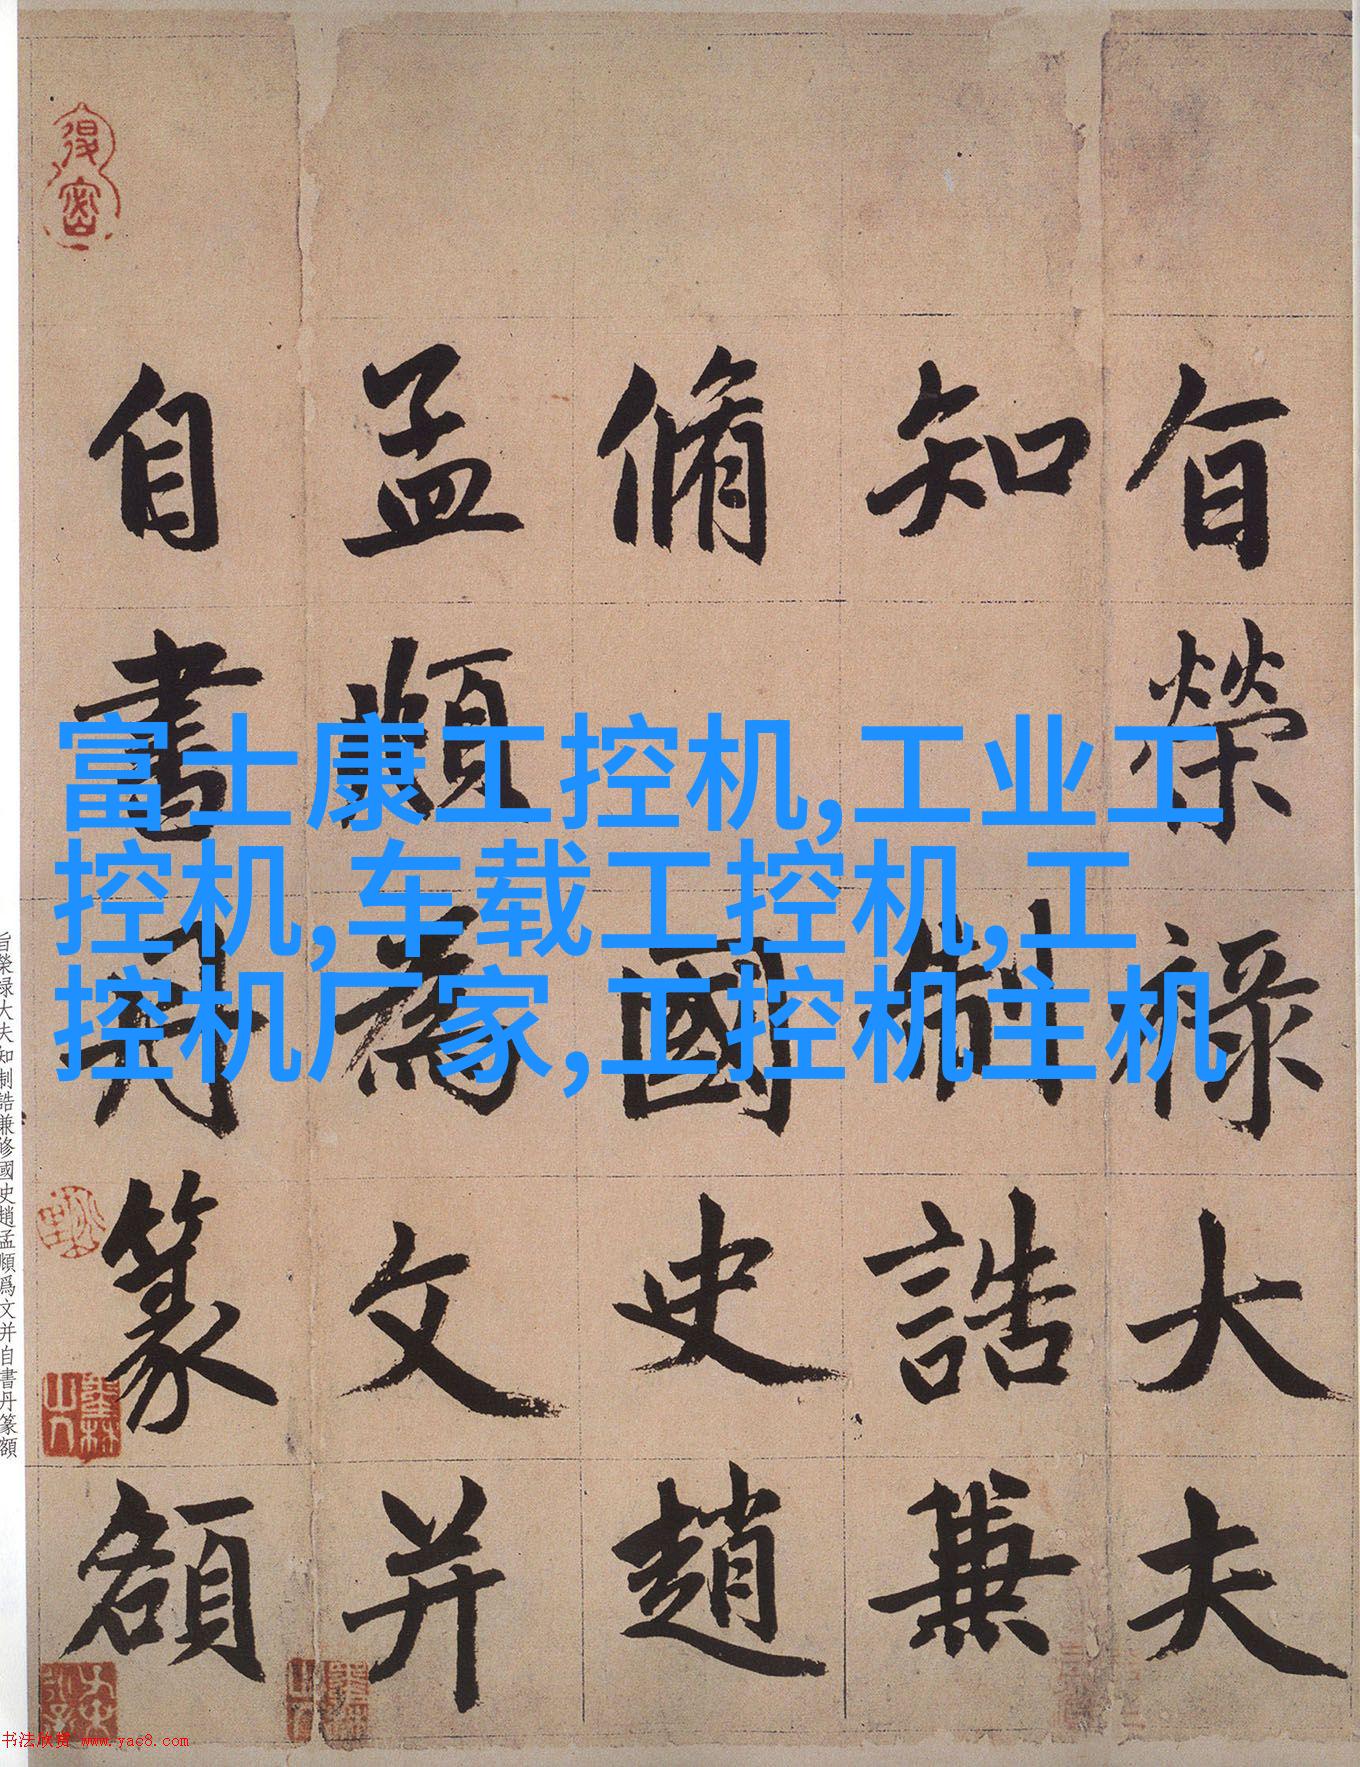 富士康工控机,工业工
控机,车载工控机,工
控机厂家,工控机主机
旨榮祿大夫
知制誥兼
脩國史趙
孟頫為文并
自書丹篆額
旨榮禄大夫知制誥兼修國史趙孟頫爲文并自書丹篆額
书法欣赏 www.yac8.com